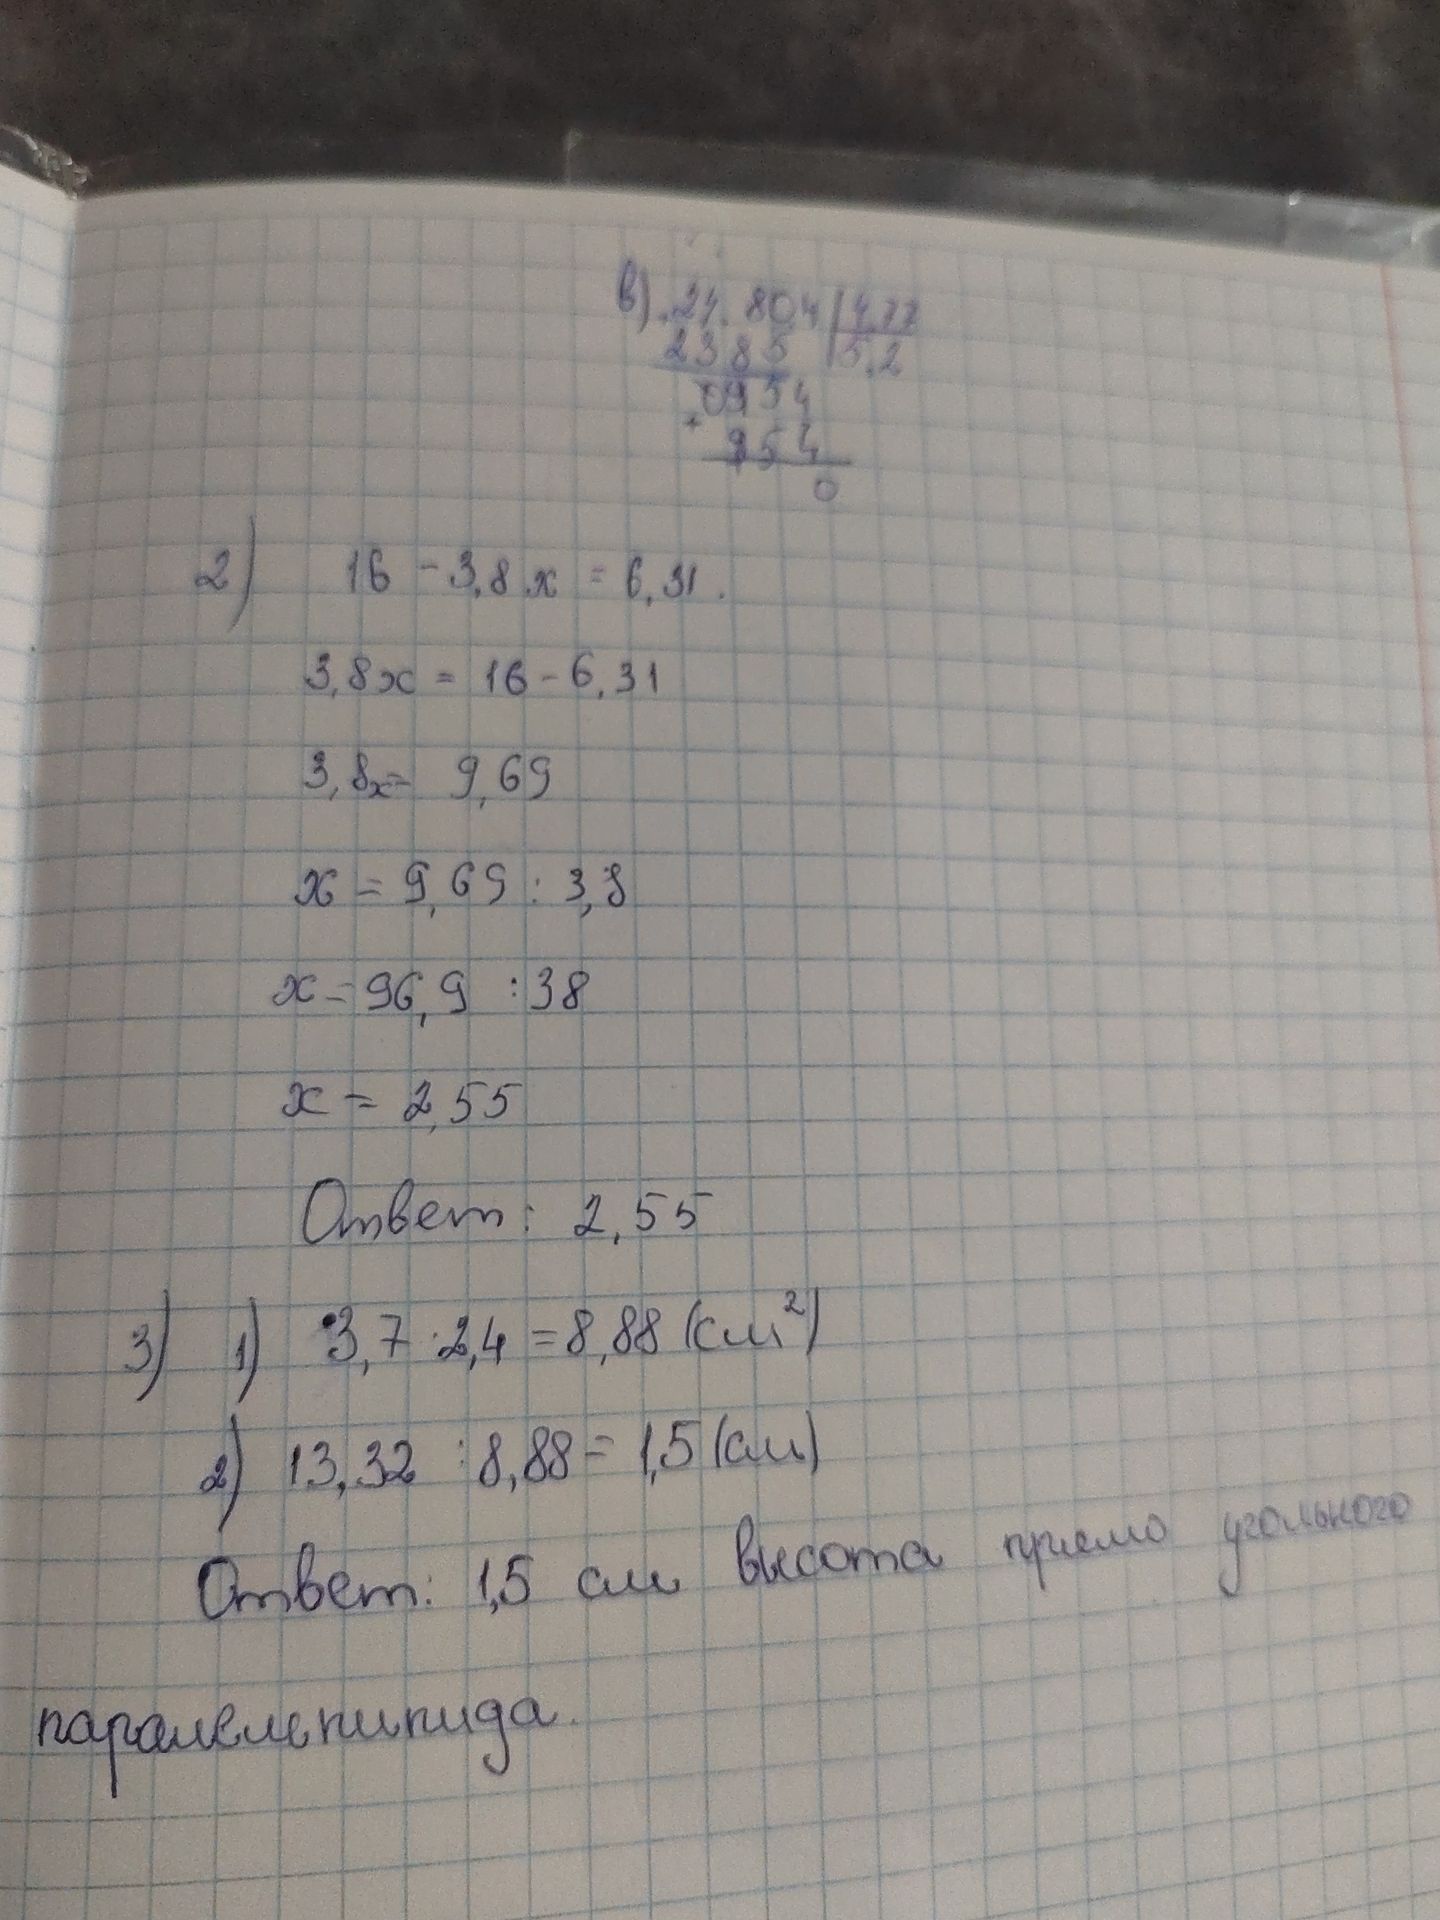 в) 24.804 4,77
2385 5,2
0954
954
0
2) 16 - 3,8x = 6,31.
3,8x = 16 - 6,31
3,8x = 9,69
x = 9,69 : 3,8
x = 96,9 : 38
x = 2,55
Ответ: 2,55
3) 1) 3,7 · 2,4 = 8,88 (см²)
2) 13,32 : 8,88 = 1,5 (см)
Ответ: 1,5 см высота прямо угольного
паралелепипида.